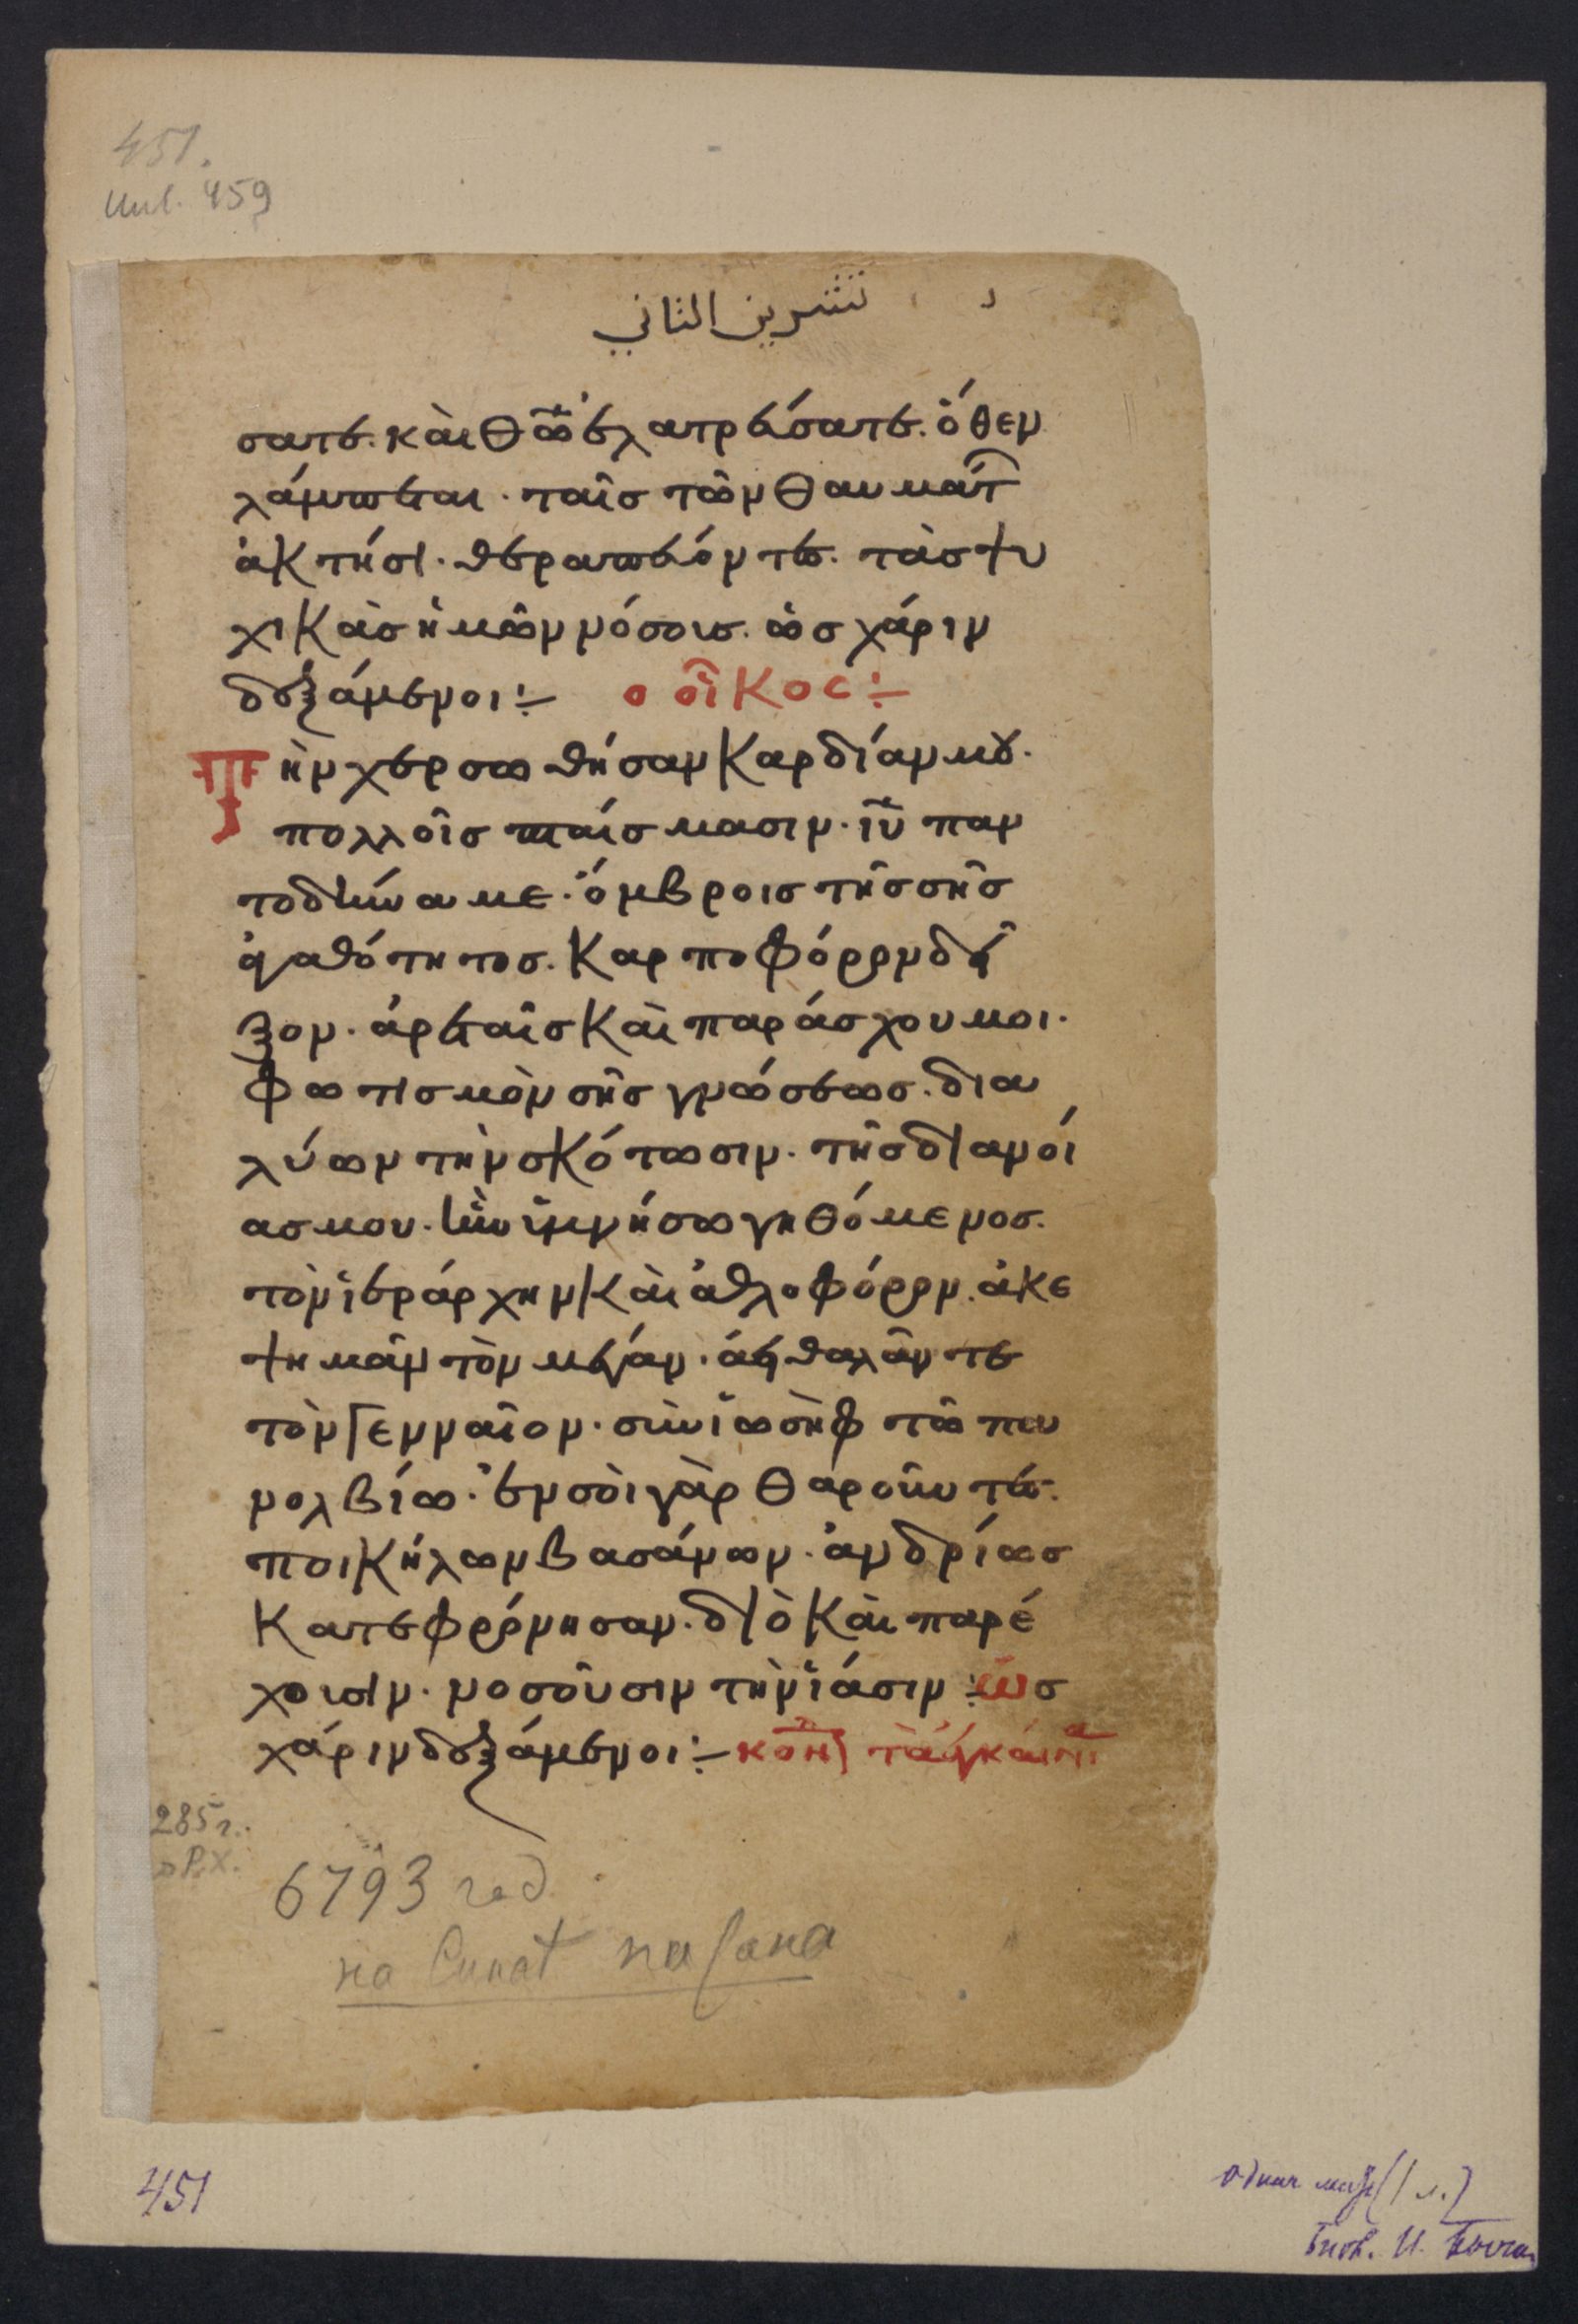 451.
Инв. 459
تشرين الثاني
σατε. καὶ θῶ ἐλατρεύσατε. ὅθεν
λάμπεται. ταῖς τῶν θαυμάτ
ἀκτήσι. θεραπεύοντες. τὰς ψυ
χικὰς ἡμῶν νόσους. ὡς χάριν
δεξάμενοι:— ο οἶκος:—
Τὴν χερσωθήσαν καρδίαν μου.
πολλοῖς πταίσμασιν. ιῦ παν
τοδύναμε. ὄμβροις τῆς σῆς
ἀγαθότητος. καρποφόρον δεῖ
ξον. ἀρεταῖς καὶ παράσχου μοι.
φωτισμὸν σῆς γνώσεως. δια
λύων τὴν σκότωσιν. τῆς διανοί
ας μου. ἵν ὑμνήσω γηθόμενος.
τὸν ἱεράρχην καὶ ἀθλοφόρον. ἀκε
ψημᾶν τὸν μέγαν. ἀειθαλᾶν τε
τὸν γενναῖον. σὺν ἰωσὴφ τῶ πυ
νολβίω. ἐν σοὶ γὰρ θαροῦντες.
ποικήλων βασάνων. ἀνδρίως
κατεφρόνησαν. διὸ καὶ παρέ
χουσιν. νοσοῦσιν τὴν ἴασιν: ὡς
χάριν δεξάμενοι:—
285 г.
P.X.
6793 год
на Синат
451
(1 л.)